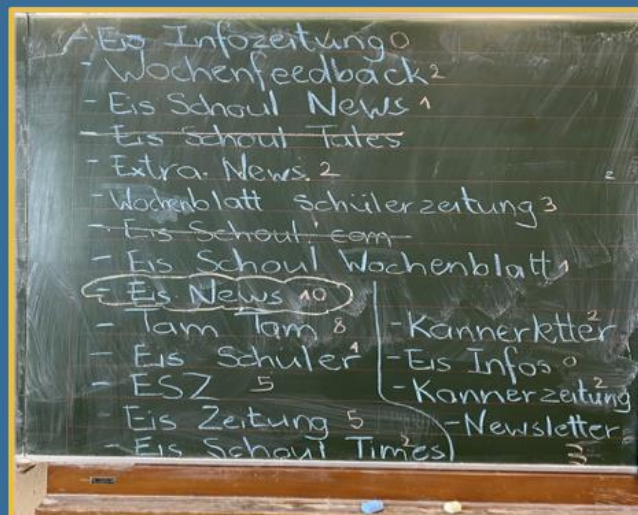 - Eis Infozeitung 0
- Wochenfeedback 2
- Eis Schoul News 1
- Eis Schoul Tales
- Extra. News. 2
- Wochenblatt Schülerzeitung 3
- Eis Schoul. com
- Eis Schoul Wochenblatt 1
- Eis News 10
- Tam Tam 8
- Eis Schüler 1
- ESZ 5
- Eis Zeitung 5
- Eis Schoul Times 2
- Kannerletter 2
- Eis Infos 0
- Kannerzeitung 2
- Newsletter